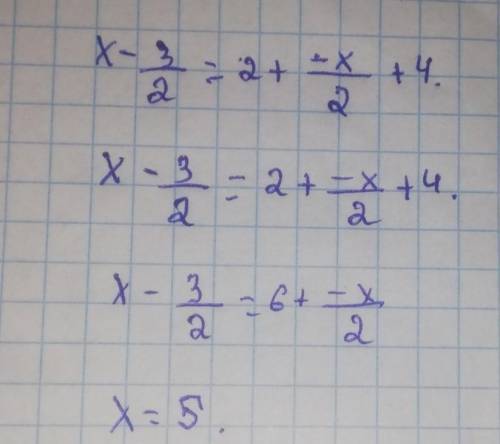 x - 3/2 = 2 + -x/2 + 4.
x - 3/2 = 2 + -x/2 + 4.
x - 3/2 = 6 + -x/2
x = 5.